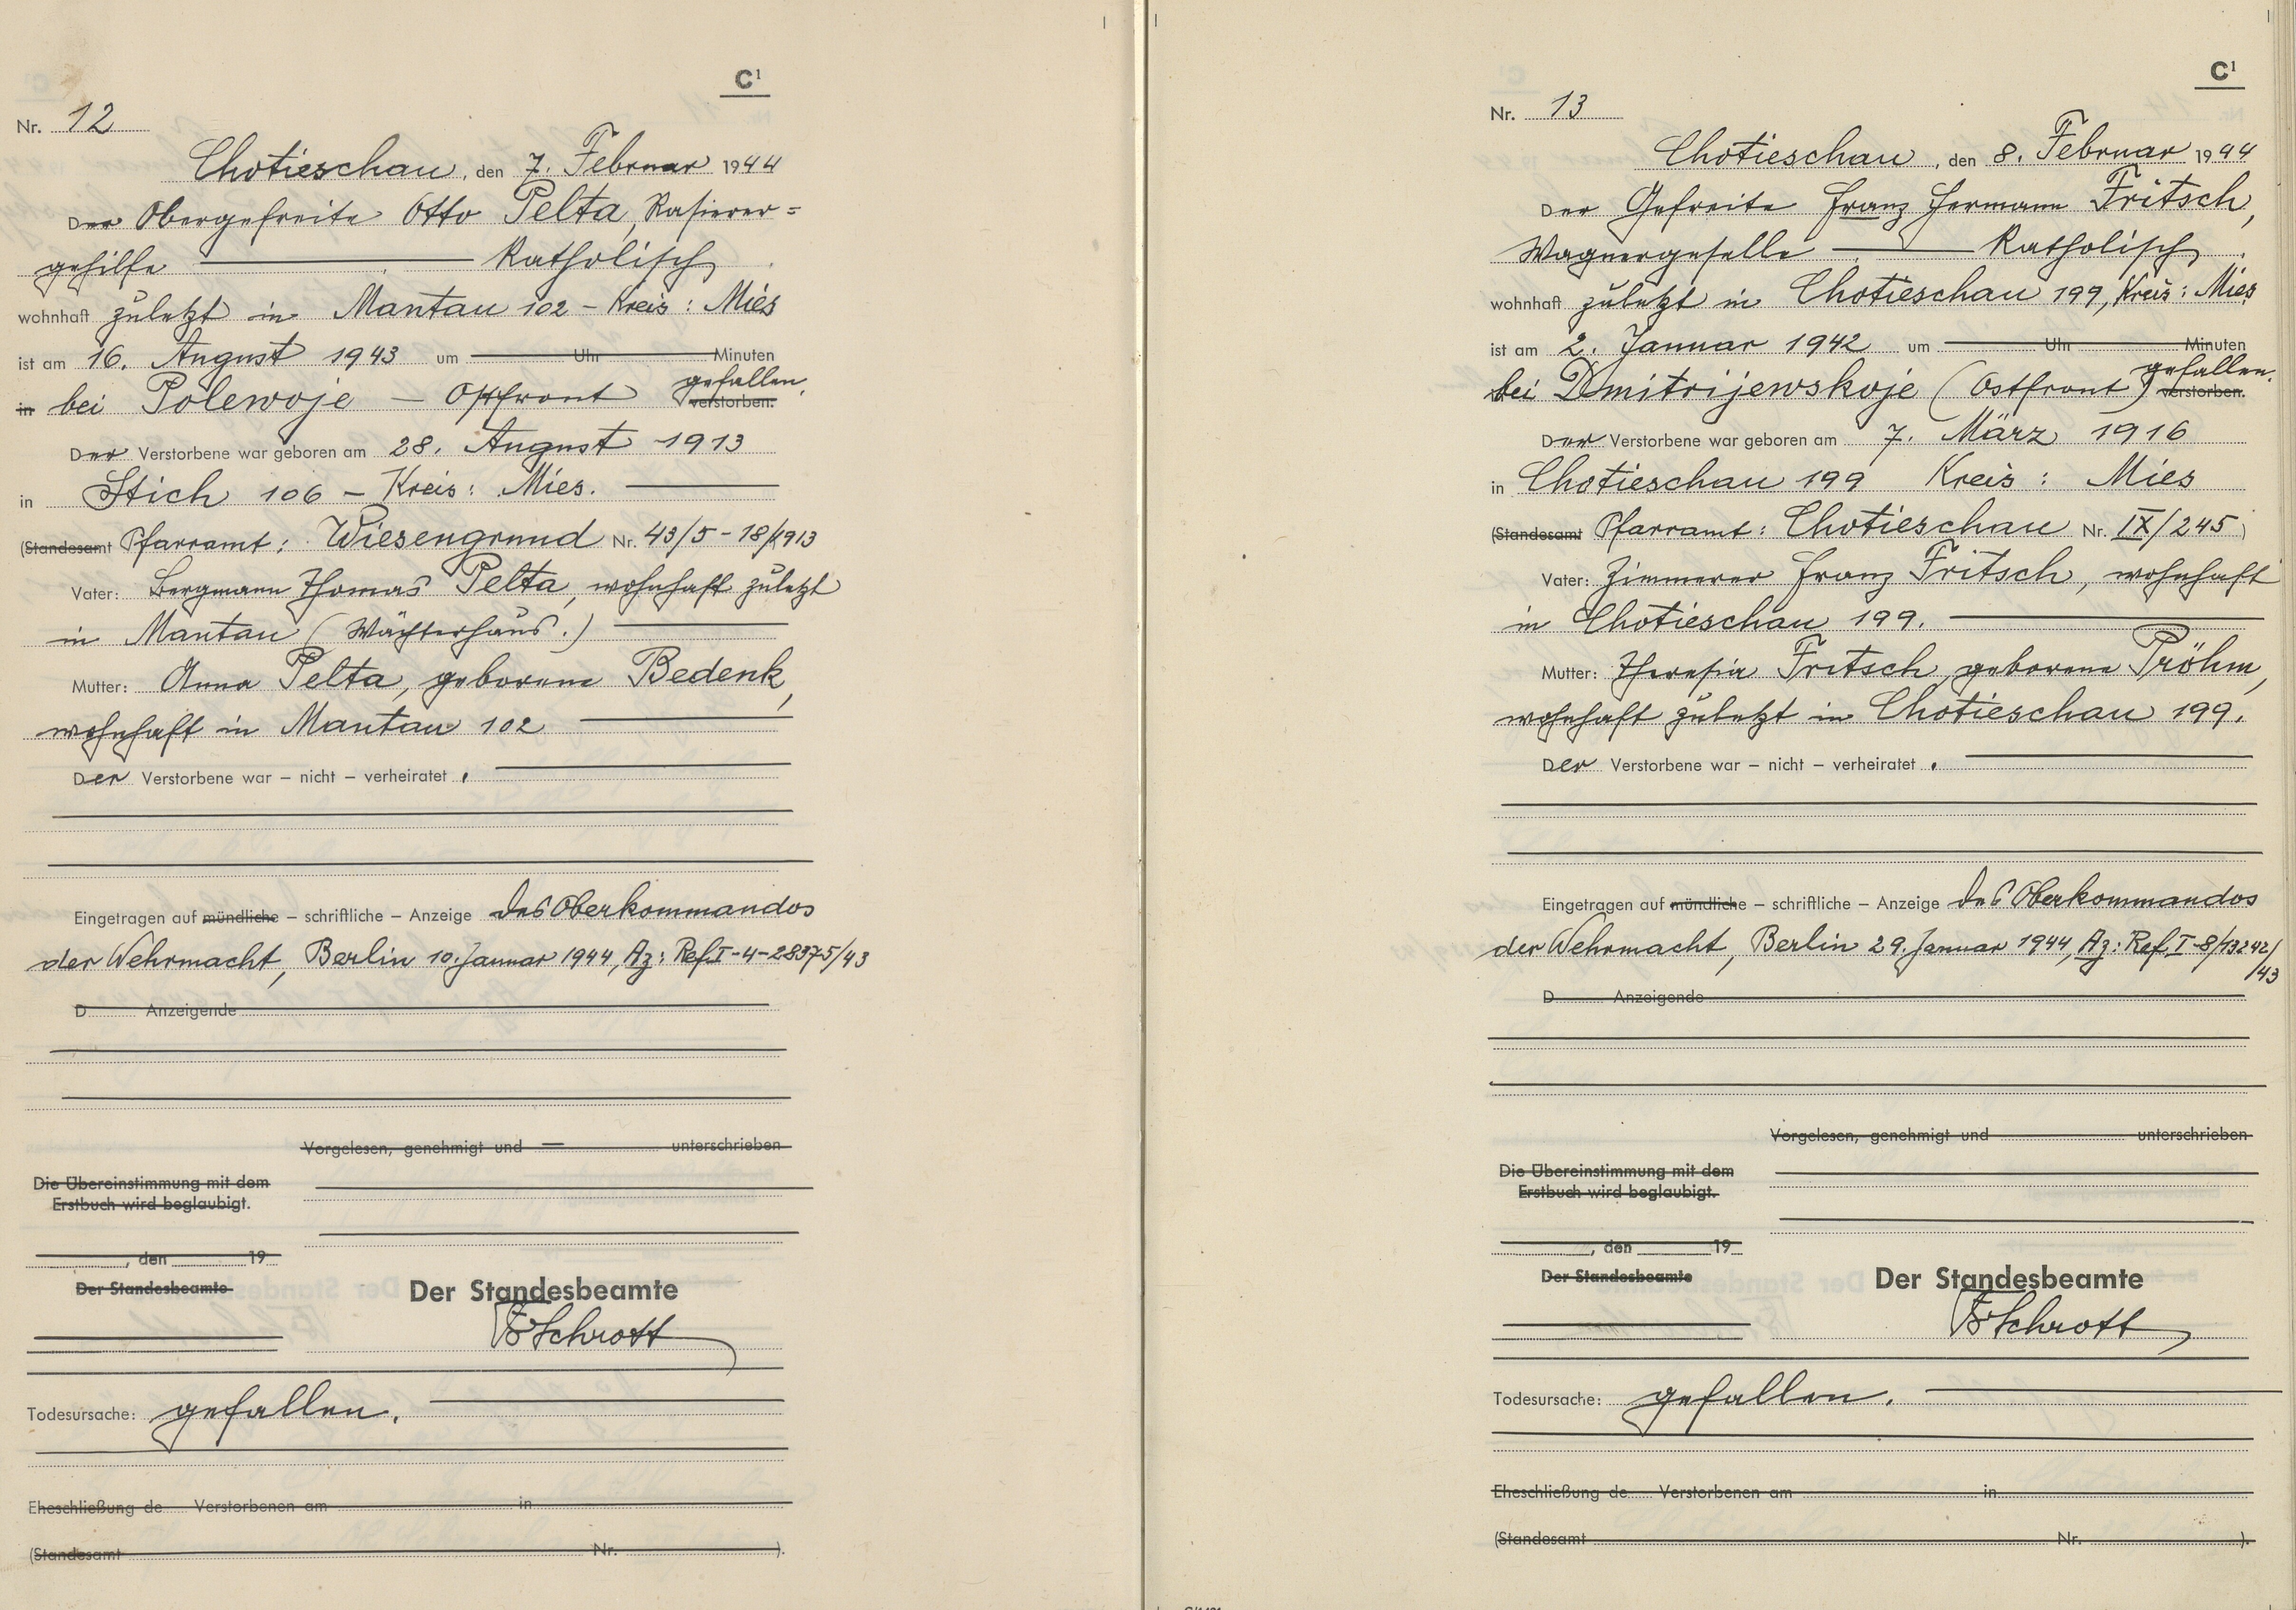 C¹
Nr. 12
Chotieschau, den 7. Februar 1944
Der Obergefreite Otto Pelta, Rasierer=
gehilfe — Katholisch
wohnhaft zuletzt in Mantau 102 – Kreis: Mies
ist am 16. August 1943 um — Uhr — Minuten
in bei Polewoje – Ostfront gefallen. verstorben.
Der Verstorbene war geboren am 28. August 1913
in Stich 106 – Kreis: Mies.
(Standesamt Pfarramt: Wiesengrund Nr. 43/5-18/1913
Vater: Bergmann Thomas Pelta, wohnhaft zuletzt
in Mantau (Wächterhaus.)
Mutter: Anna Pelta, geborene Bedenk,
wohnhaft in Mantau 102
Der Verstorbene war – nicht – verheiratet.
Eingetragen auf mündliche – schriftliche – Anzeige des Oberkommandos
der Wehrmacht, Berlin 10. Januar 1944, Az: Ref. I-4-28375/43
D Anzeigende
Vorgelesen, genehmigt und — unterschrieben
Die Übereinstimmung mit dem
Erstbuch wird beglaubigt.
, den 19
Der Standesbeamte
Der Standesbeamte
Schrott
Todesursache: gefallen.
Eheschließung de Verstorbenen am in
(Standesamt Nr. ).
C¹
Nr. 13
Chotieschau, den 8. Februar 1944
Der Gefreite Franz Hermann Fritsch,
Wagnergeselle — Katholisch
wohnhaft zuletzt in Chotieschau 199, Kreis: Mies
ist am 2. Januar 1942 um — Uhr — Minuten
bei Dmitrijewskoje (Ostfront) gefallen. verstorben.
Der Verstorbene war geboren am 7. März 1916
in Chotieschau 199 Kreis: Mies
(Standesamt Pfarramt: Chotieschau Nr. IX/245)
Vater: Zimmerer Franz Fritsch, wohnhaft
in Chotieschau 199.
Mutter: Theresia Fritsch, geborene Pröhm,
wohnhaft zuletzt in Chotieschau 199.
Der Verstorbene war – nicht – verheiratet.
Eingetragen auf mündliche – schriftliche – Anzeige des Oberkommandos
der Wehrmacht, Berlin 29. Januar 1944, Az: Ref. I-8/13242/
/43
D Anzeigende
Vorgelesen, genehmigt und unterschrieben
Die Übereinstimmung mit dem
Erstbuch wird beglaubigt.
, den 19
Der Standesbeamte
Der Standesbeamte
Schrott
Todesursache: gefallen.
Eheschließung de Verstorbenen am in
(Standesamt Nr. ).